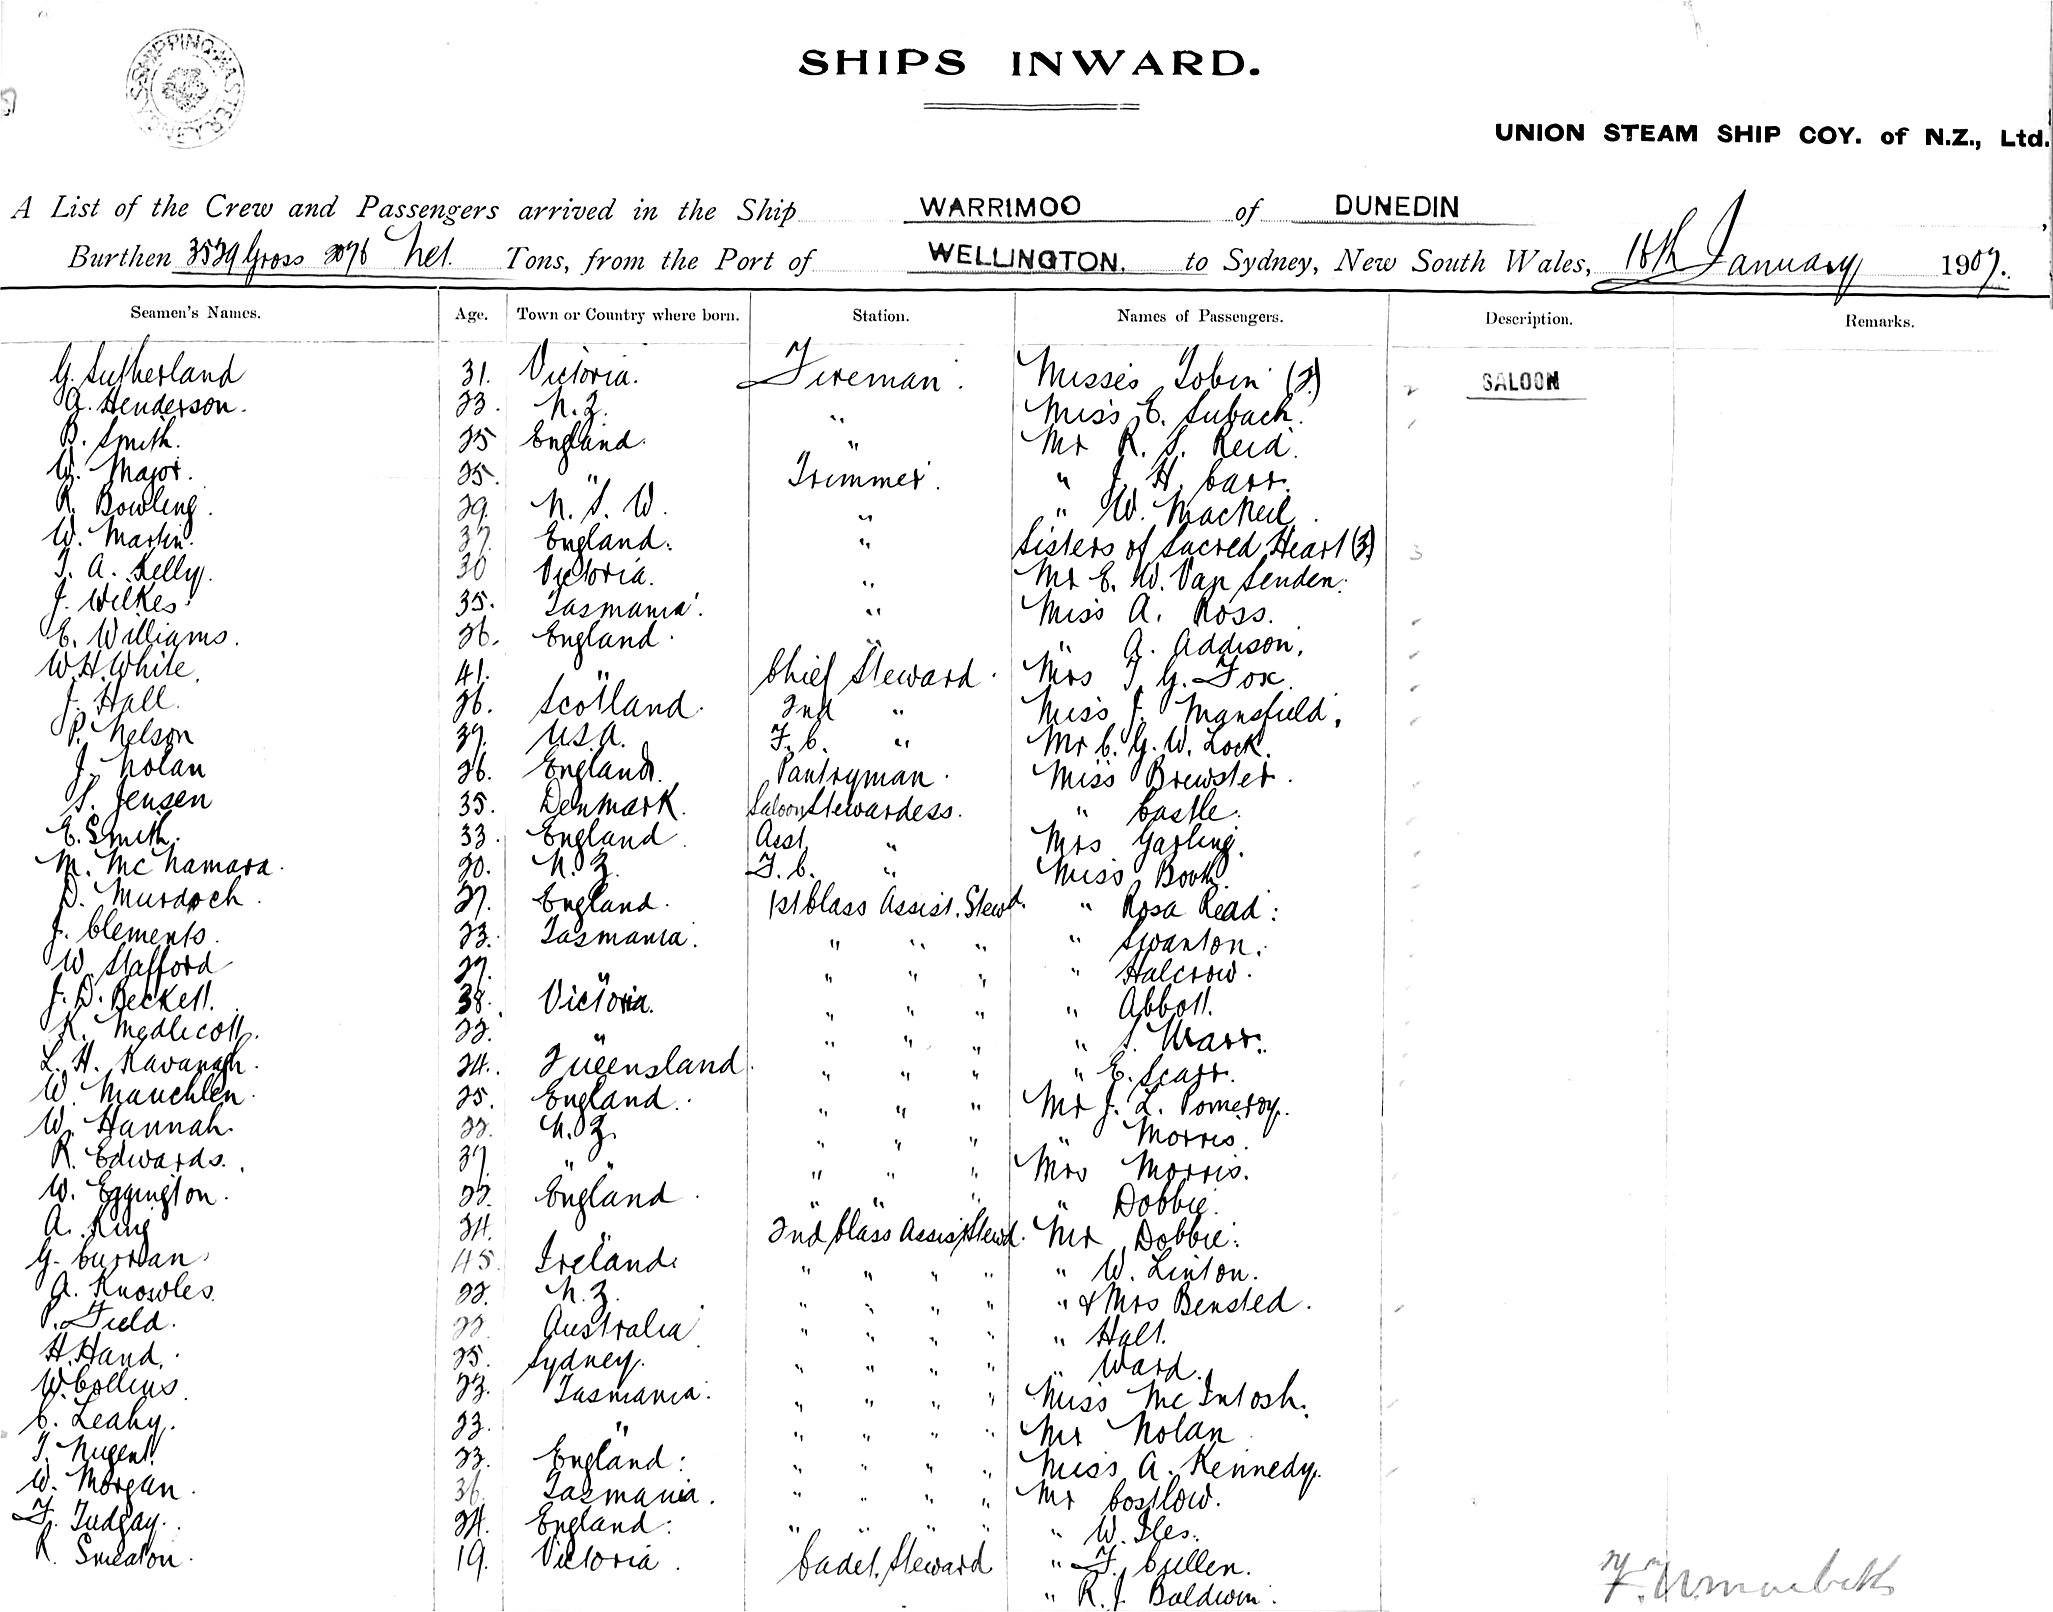 SHIPPING MASTER SYDNEY
SHIPS INWARD.
UNION STEAM SHIP COY. of N.Z., Ltd.
A List of the Crew and Passengers arrived in the Ship WARRIMOO of DUNEDIN
Burthen 3529 Gross 2076 Net. Tons, from the Port of WELLINGTON. to Sydney, New South Wales, 16th January 1907.
Seamen's Names. Age. Town or Country where born. Station. Names of Passengers. Description. Remarks.
G. Sutherland 31. Victoria. Fireman. Misses Tobin (2) 2 SALOON
A. Henderson. 23. N.Z. " Miss E. Subach.
B. Smith. 25 England. " Mr R. S. Reid.
W. Major. 25. " Trimmer. " J. H. Carr.
R. Bowling. 29. N.S.W. " " W. MacNeil.
W. Martin. 37. England. " Sisters of Sacred Heart (3) 3
T. A. Kelly. 30 Victoria. " Mr E. W. Van Senden.
J. Wilkes. 35. Tasmania. " Miss A. Ross.
E. Williams. 26. England. " " A. Addison.
W. H. White. 41. " Chief Steward. Mrs T. G. Fox.
J. Hall. 26. Scotland. 2nd " Miss J. Mansfield.
P. Nelson 39. U.S.A. F.C. " Mr C. G. W. Lock.
J. Nolan 26. England. Pantryman. Miss Brewster.
S. Jensen 35. Denmark. Saloon Stewardess. " Castle.
E. Smith. 33. England Asst. " Mrs Garling.
M. McNamara. 30. N.Z. F.C. " Miss Book.
D. Murdoch. 27. England. 1st Class Assist. Stewd. " Rosa Read:
J. Clements. 23. Tasmania. " " " " Swanton.
W. Stafford 27. " " " " " Halcrow.
J. D. Beckett. 38. Victoria. " " " " Abbott.
R. Medlicott. 22. " " " " " S. Marr.
L. H. Kavanagh. 24. Queensland. " " " " E. Scarr.
W. Mauchlen. 25. England. " " " Mr J. L. Pomeroy.
W. Hannah. 22. N.Z. " " " " Morris.
R. Edwards. 37. " " " " " Mrs Morris.
W. Eggington. 22. England. " " " " Dobbie.
A. King 24. " 2nd Class Assist Stewd. Mr Dobbie.
G. Curran. 45. Ireland. " " " " " W. Linton.
A. Knowles. 22. N.Z. " " " " " & Mrs Bensted.
P. Field. 22. Australia " " " " " Hall.
H. Hand. 25. Sydney. " " " " " Ward.
W. Collins. 23. Tasmania. " " " " Miss McIntosh.
C. Leahy. 23. " " " " " Mr Nolan
T. Nugent. 23. England: " " " " Miss A. Kennedy.
W. Morgan. 36. Tasmania. " " " " Mr Costlow.
F. Tudgay. 24. England: " " " " " W. Iles.
R. Smeaton. 19. Victoria. Cadet. Steward " F. Cullen.
" R. J. Baldwin.